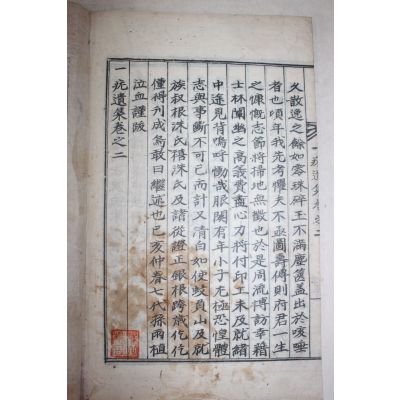 久散逸之餘如零珠碎玉不滿塵篋盖出於咳唾
者也頃年我先考懼夫不亟圖壽傳則府君一生
之慷慨志節將掃地無徵也於是周流博訪幸藉
士林闡幽之高義費盡心刀將付印工未及就緒
中途見背嗚呼慟哉服闋有年小子无極恐惶體
志與事斷不可已而計又清白如使蚊負山及就
族叔根洙氏禧洙氏及諸從證正銀根跨歲仡仡
僅得刋成焉敢曰繼述也已亥仲春七代孫兩植
泣血謹跋
一疣遺集卷之二
一疣遺集卷之二